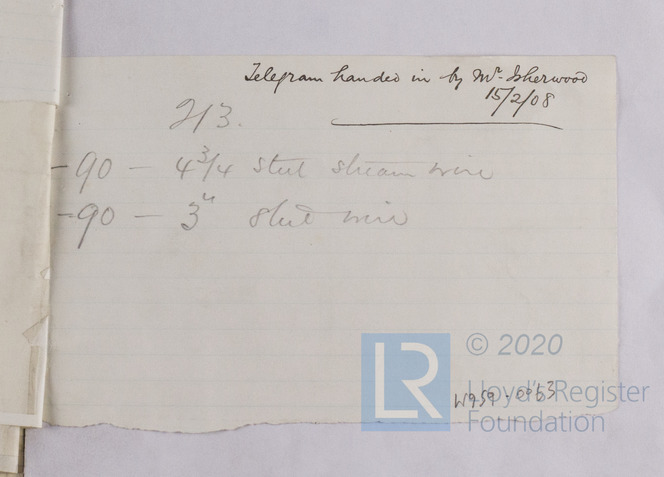 Telegram handed in by Mr. Isherwood
15/2/08
213.
-90 - 4 3/4 steel stream wire
-90 - 3" steel wire
LR © 2020
Lloyd's Register
Foundation
W959-0063